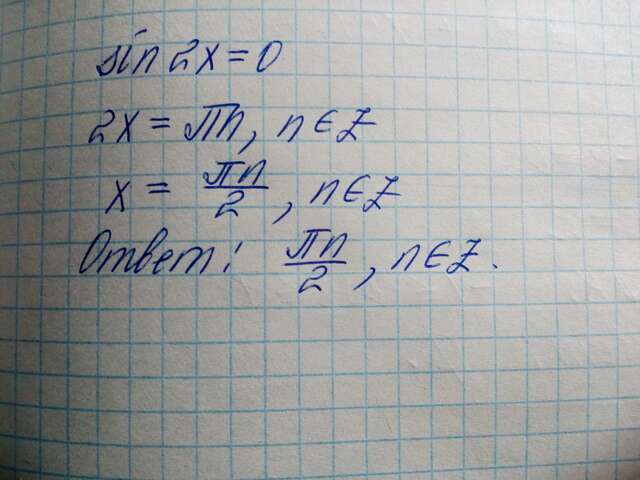 sin 2x = 0
2x = πn, n ∈ Z
x = πn/2, n ∈ Z
Ответ: πn/2, n ∈ Z.